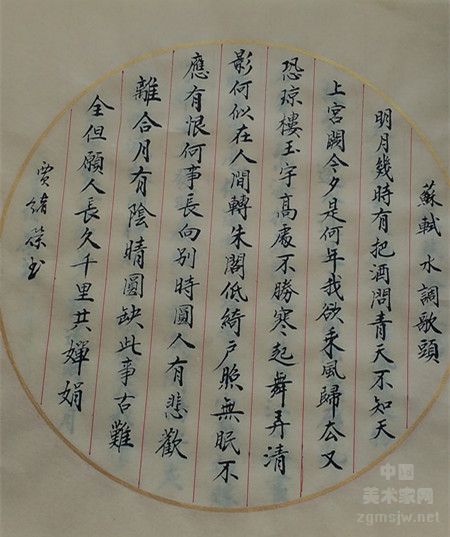 蘇軾 水調歌頭
明月幾時有把酒問青天不知天
上宮闕今夕是何年我欲乘風歸去又
恐琼樓玉宇高處不勝寒起舞弄清
影何似在人間轉朱閣低綺戶照無眠不
應有恨何事長向別時圓人有悲歡
離合月有陰晴圓缺此事古難
全但願人長久千里共嬋娟
賈緒榮书
中国
美术家网
zgmsjw.net